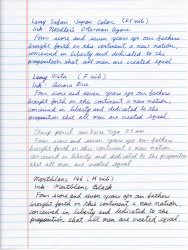 Lamy Safari Japan Color (EF nib)
Ink: Noodlers Ottoman Azure
Four score and seven years ago our fathers
brought forth on this continent a new nation,
conceived in liberty and dedicated to the
proposition that all men are created equal
Lamy Vista (F nib)
Ink: Aurora Blue
Four score and seven years ago our fathers
brought forth on this continent a new nation,
conceived in liberty and dedicated to the proposition
that all men are created equal
Sharp pencil 0.5 mm
Four score and seven years ago our fathers
brought forth on this continent a new nation,
conceived in liberty and dedicated to the proposition
that all men are created equal
Montblanc 146 (M nib)
Ink: Montblanc Black
Four score and seven years ago our fathers
brought forth on this continent a new nation,
conceived in liberty and dedicated to the
proposition that all men are created equal.